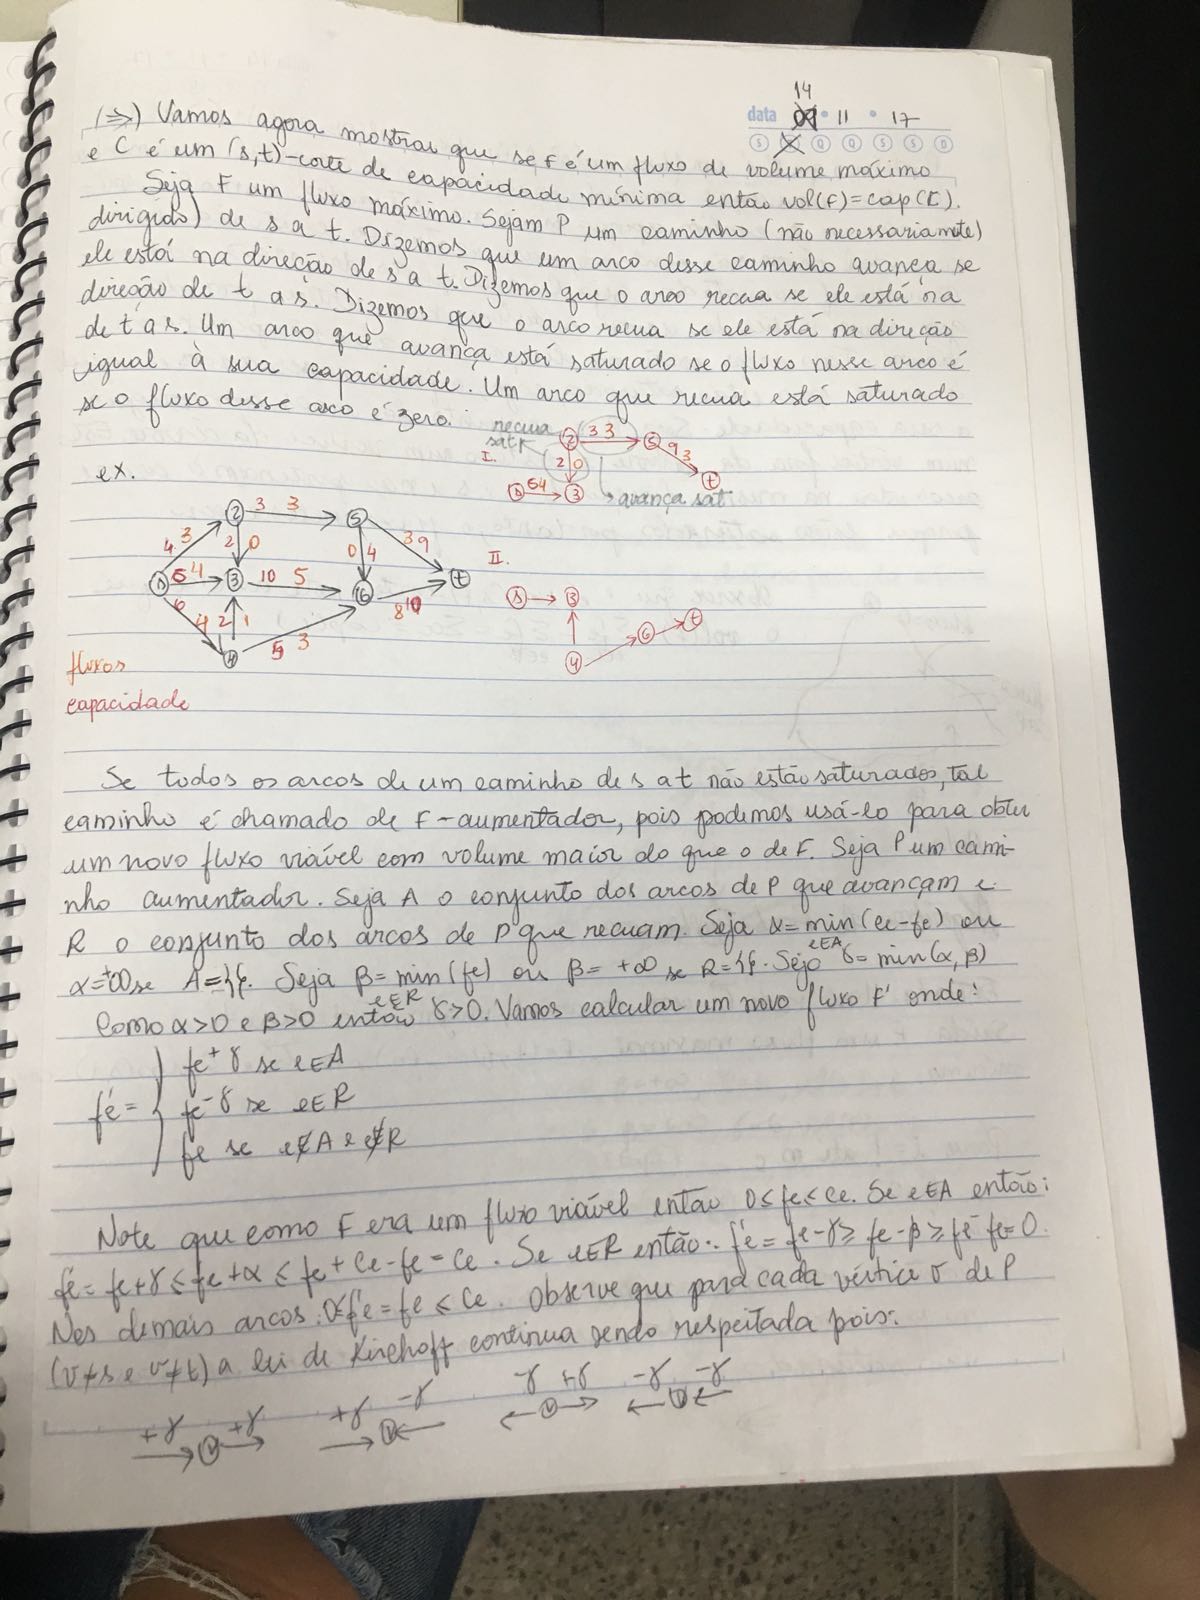 14
data 09 • 11 • 17
S Q Q S S D
(⇒) Vamos agora mostrar que se F é um fluxo de volume máximo
e C é um (s,t)-corte de capacidade mínima então vol(F)=cap(C).
Seja F um fluxo máximo. Sejam P um caminho (não necessariamente)
dirigido) de s a t. Dizemos que um arco desse caminho avança se
ele está na direção de s a t. Dizemos que o arco recua se ele está na
direção de t a s. Dizemos que o arco recua se ele está na direção
de t a s. Um arco que avança está saturado se o fluxo nesse arco é
igual à sua capacidade. Um arco que recua está saturado
se o fluxo desse arco é zero.
recua 2 3 3 5 9 3 t
sat
I. 2 0
s 5 4 3 avança sat
ex.
2 3 3 5
4 3 2 0 0 4 3 9
s 5 4 3 10 5 6 t
II.
6 4 2 1 8 10
4 5 3
s 3
4 6 t
fluxos
capacidade
Se todos os arcos de um caminho de s a t não estão saturados, tal
caminho é chamado de F-aumentador, pois podemos usá-lo para obter
um novo fluxo viável com volume maior do que o de F. Seja P um cami-
nho aumentador. Seja A o conjunto dos arcos de P que avançam e
R o conjunto dos arcos de P que recuam. Seja α=min(ce-fe) ou
e∈A
α=+∞ se A={}. Seja β=min(fe) ou β=+∞ se R={}. Seja γ=min(α,β)
e∈R
Como α>0 e β>0 então γ>0. Vamos calcular um novo fluxo F' onde:
fe+γ se e∈A
f'e= { fe-γ se e∈R
fe se e∉A e e∉R
Note que como F era um fluxo viável então 0≤fe≤ce. Se e∈A então:
f'e=fe+γ≤fe+α≤fe+ce-fe=ce. Se e∈R então: f'e=fe-γ≥fe-β≥fe-fe=0.
Nos demais arcos: 0≤f'e=fe≤ce. Observe que para cada vértice v de P
(v≠s e v≠t) a lei de Kirchoff continua sendo respeitada pois:
+γ +γ +γ -γ -γ +γ -γ -γ
→ v → → v ← ← v → ← v ←